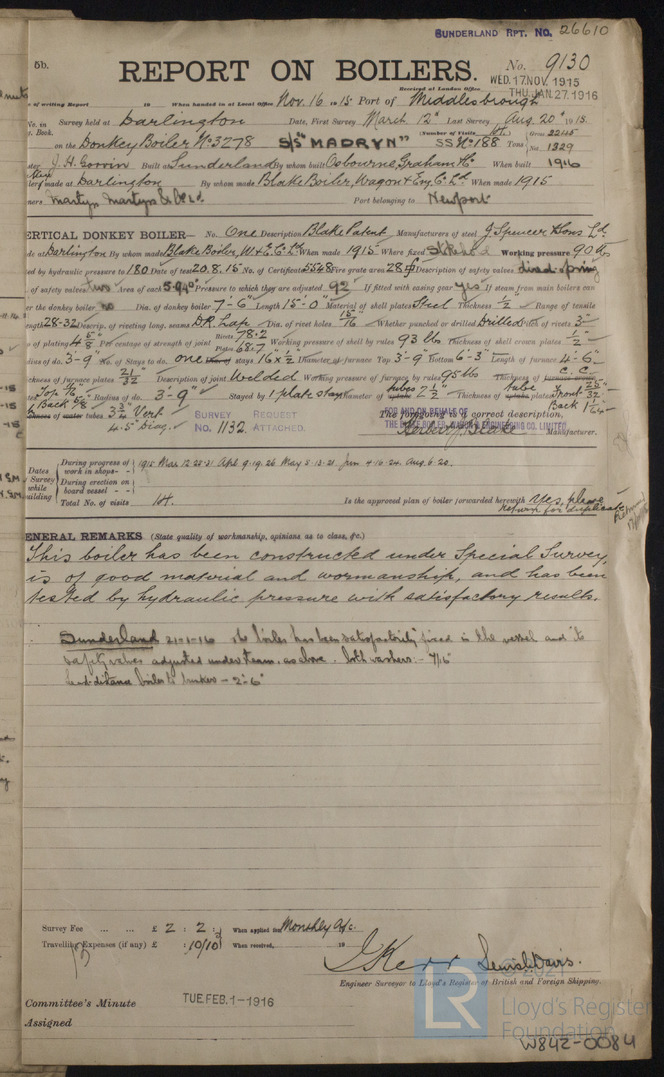 SUNDERLAND RPT. NO. 26610
5b.
No. 9130
REPORT ON BOILERS.
Received at London Office WED. 17. NOV. 1915
THU. JAN. 27. 1916
of writing Report 19 When handed in at Local Office Nov. 16 1915 Port of Middlesbrough
No. in Survey held at Darlington Date, First Survey March 12th Last Survey Aug. 20th 1915
Book. (Number of Visits 14.) Gross 2245
on the Donkey Boiler No 3278 S/S "MADRYN" SS No 188 Tons Net 1329
J. H. Gorvin Built at Sunderland By whom built Osbourne, Graham & Co When built 1916
made at Darlington By whom made Blake Boiler, Wagon & Eng. Co. Ld. When made 1915
Port belonging to Newport
ERTICAL DONKEY BOILER— No. One Description Blake Patent Manufacturers of steel J. Spencer & Sons Ld.
de at Darlington By whom made Blake Boiler, W. & E. Co. Ld. When made 1915 Where fixed Stokehold Working pressure 90 lbs
ed by hydraulic pressure to 180 Date of test 20.8.15 No. of Certificate 5548 Fire grate area 28 Description of safety valves direct spring
of safety valves two Area of each 5.940" Pressure to which they are adjusted 92 If fitted with easing gear yes If steam from main boilers can
er the donkey boiler no Dia. of donkey boiler 7'-6" Length 15'-0" Material of shell plates Steel Thickness 1/2 Range of tensile
ength 28-32 Descrip. of riveting long. seams D.R. Lap Dia. of rivet holes 15/16" Whether punched or drilled Drilled Pitch of rivets 3"
of plating 4 5/8 Per centage of strength of joint Rivets 78.2 Plates 68.7 Working pressure of shell by rules 93 lbs Thickness of shell crown plates 1/2"
dius of do. 3'-9" No. of Stays to do. one stays 16 x 1/2 Diameter of furnace Top 3'-9" Bottom 6'-3" Length of furnace 4'-6"
ckness of furnace plates 21/32" Description of joint Welded Working pressure of furnace by rules 95 lbs Thickness of furnace crown C. C.
tes Top 11/16" Radius of do. 3'-9" Stayed by 1 plate stay Diameter of uptake tubes 2 1/2" Thickness of uptake plates tube Front 25/32
Back 7/8 Back 1 1/64
ckness of water tubes 3 3/4 Vert
4.5" Diag.
SURVEY REQUEST
No. 1132. ATTACHED.
The foregoing is a correct description,
FOR AND ON BEHALF OF
THE BLAKE BOILER, WAGON & ENGINEERING CO. LIMITED
Manufacturer.
Dates Survey while building
During progress of work in shops - - 1915 Mar. 12.25.31 Apl 9.19.26 May 5.13.21. Jun 4.16.24. Aug. 6.20.
During erection on board vessel - -
Total No. of visits 14.
Is the approved plan of boiler forwarded herewith Yes, please
return for duplicate
ENERAL REMARKS (State quality of workmanship, opinions as to class, &c.)
This boiler has been constructed under Special Survey,
is of good material and wormanship, and has been
tested by hydraulic pressure with satisfactory results.
Sunderland 21-1-16 The boiler has been satisfactorily fixed in the vessel and its
safety valves adjusted under steam, as above. both washers:- 7/16"
Least distance boiler to bunkers - 2'-6"
Survey Fee ... ... £ 2 : 2 : When applied for Monthly A/c.
Travelling Expenses (if any) £ : 10/10 When received, 19
J Kerr Lewis Davis.
Engineer Surveyor to Lloyd's Register of British and Foreign Shipping.
Committee's Minute TUE. FEB. 1 - 1916
Assigned
© 2021
LR
Lloyd's Register
Foundation
W842-0084